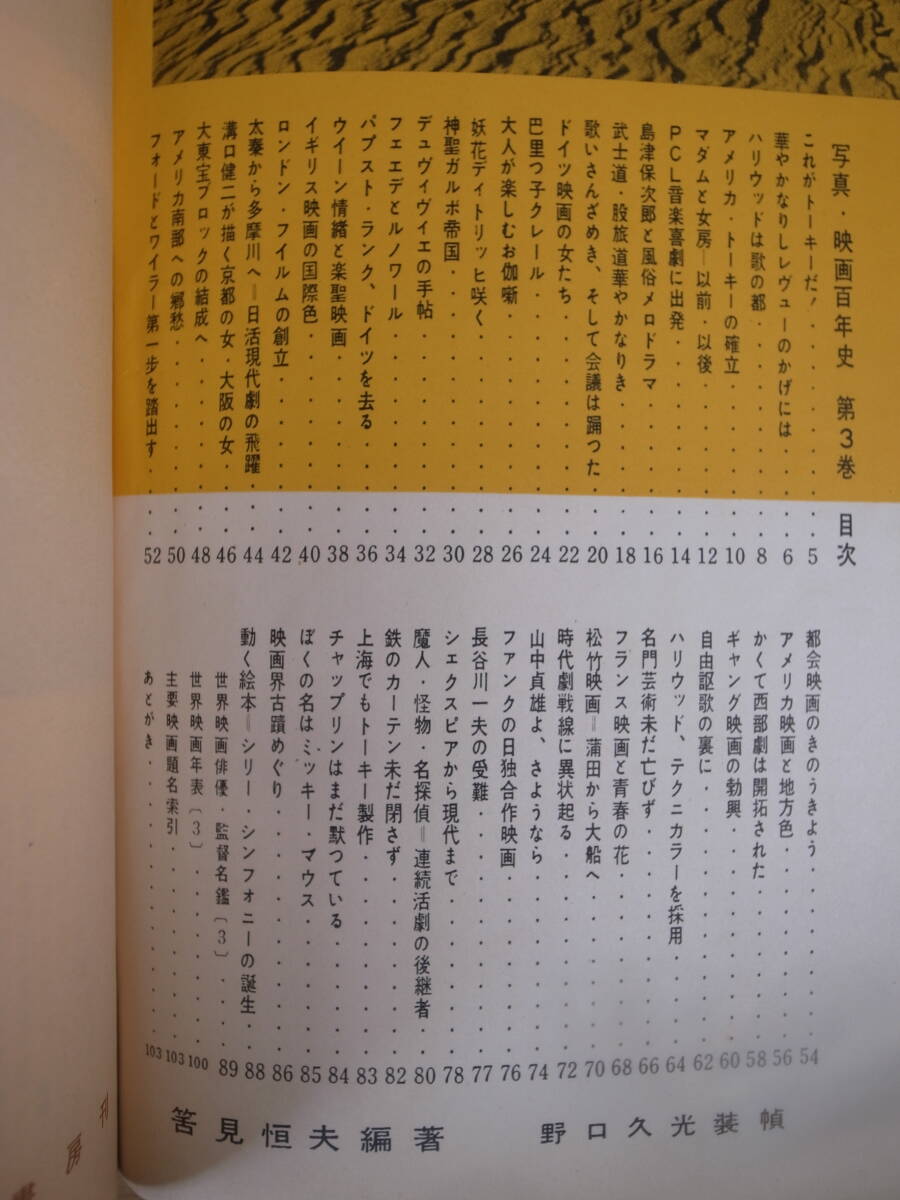 写真・映画百年史 第3巻 目次
これがトーキーだ！・・・・・・・・5
華やかなりしレヴューのかげには・・・6
ハリウッドは歌の都・・・・・・・・8
アメリカ・トーキーの確立・・・・・10
マダムと女房＝以前・以後・・・・・12
PCL音楽喜劇に出発・・・・・・・14
島津保次郎と風俗メロドラマ・・・・16
武士道・股旅道華やかなりき・・・・18
歌いさんざめき、そして会議は踊つた・・20
ドイツ映画の女たち・・・・・・・・22
巴里つ子クレール・・・・・・・・・24
大人が楽しむお伽噺・・・・・・・・26
妖花ディトリッヒ咲く・・・・・・・28
神聖ガルボ帝国・・・・・・・・・・30
デュヴィヴィエの手帖・・・・・・・32
フェエデとルノワール・・・・・・・34
パブスト・ランク、ドイツを去る・・・36
ウイーン情緒と楽聖映画・・・・・・38
イギリス映画の国際色・・・・・・・40
ロンドン・フイルムの創立・・・・・42
太秦から多摩川へ＝日活現代劇の飛躍・・44
溝口健二が描く京都の女・大阪の女・・46
大東宝ブロックの結成へ・・・・・・48
アメリカ南部への郷愁・・・・・・・50
フォードとワイラー第一歩を踏出す・・52
都会映画のきのうきよう・・・・・・54
アメリカ映画と地方色・・・・・・・56
かくて西部劇は開拓された・・・・・58
ギャング映画の勃興・・・・・・・・60
自由謳歌の裏に・・・・・・・・・・62
ハリウッド、テクニカラーを採用・・・64
名門芸術未だ亡びず・・・・・・・・66
フランス映画と青春の花・・・・・・68
松竹映画＝蒲田から大船へ・・・・・70
時代劇戦線に異状起る・・・・・・・72
山中貞雄よ、さようなら・・・・・・74
ファンクの日独合作映画・・・・・・76
長谷川一夫の受難・・・・・・・・・77
シェクスピアから現代まで・・・・・78
魔人・怪物・名探偵＝連続活劇の後継者・・80
鉄のカーテン未だ閉さず・・・・・・82
上海でもトーキー製作・・・・・・・83
チャップリンはまだ默つている・・・84
ぼくの名はミッキー・マウス・・・・85
映画界古蹟めぐり・・・・・・・・・86
動く絵本＝シリー・シンフォニーの誕生・・88
世界映画俳優・監督名鑑〔3〕・・・89
世界映画年表〔3〕・・・・・・・・100
主要映画題名索引・・・・・・・・・103
あとがき・・・・・・・・・・・・・103
筈見恒夫編著
野口久光装幀
房刊